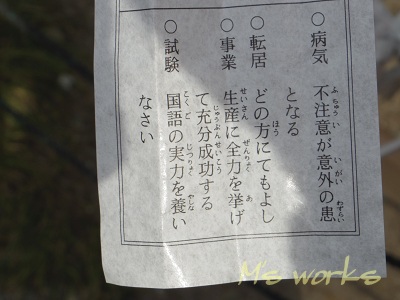 ○病気 不注意が意外の患
となる
○転居 どの方にてもよし
○事業 生産に全力を挙げ
て充分成功する
○試験 国語の実力を養い
なさい
M's works